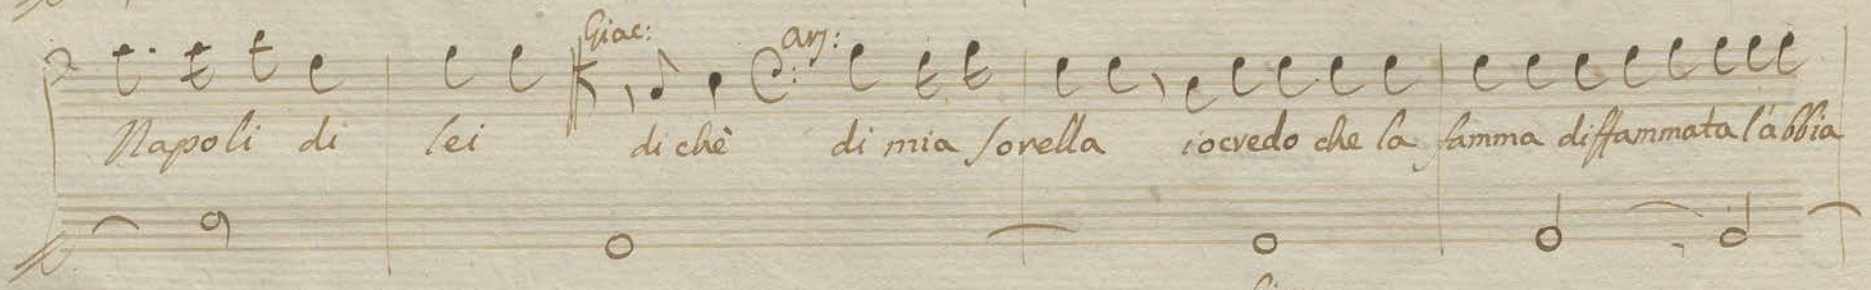 Giac: Arj:
Napoli di lei di chè di mia sorella io credo che la famma diffammata l'abbia